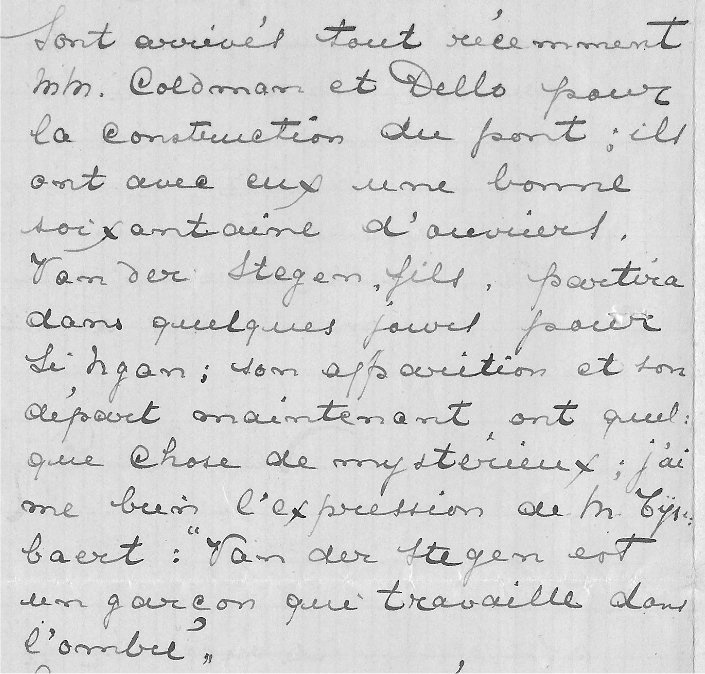 Sont arrivés tout récemment
MM. Coldman et Dello pour
la construction du pont ; ils
ont avec eux une bonne
soixantaine d'ouvriers.
Van der Stegen, fils, partira
dans quelques jours pour
Si Ngan ; son apparition et son
départ maintenant ont quel:
que chose de mystérieux ; j'ai
me bien l'expression de M.
baert : "Van der Stegen est
un garçon qui travaille dans
l'ombre"